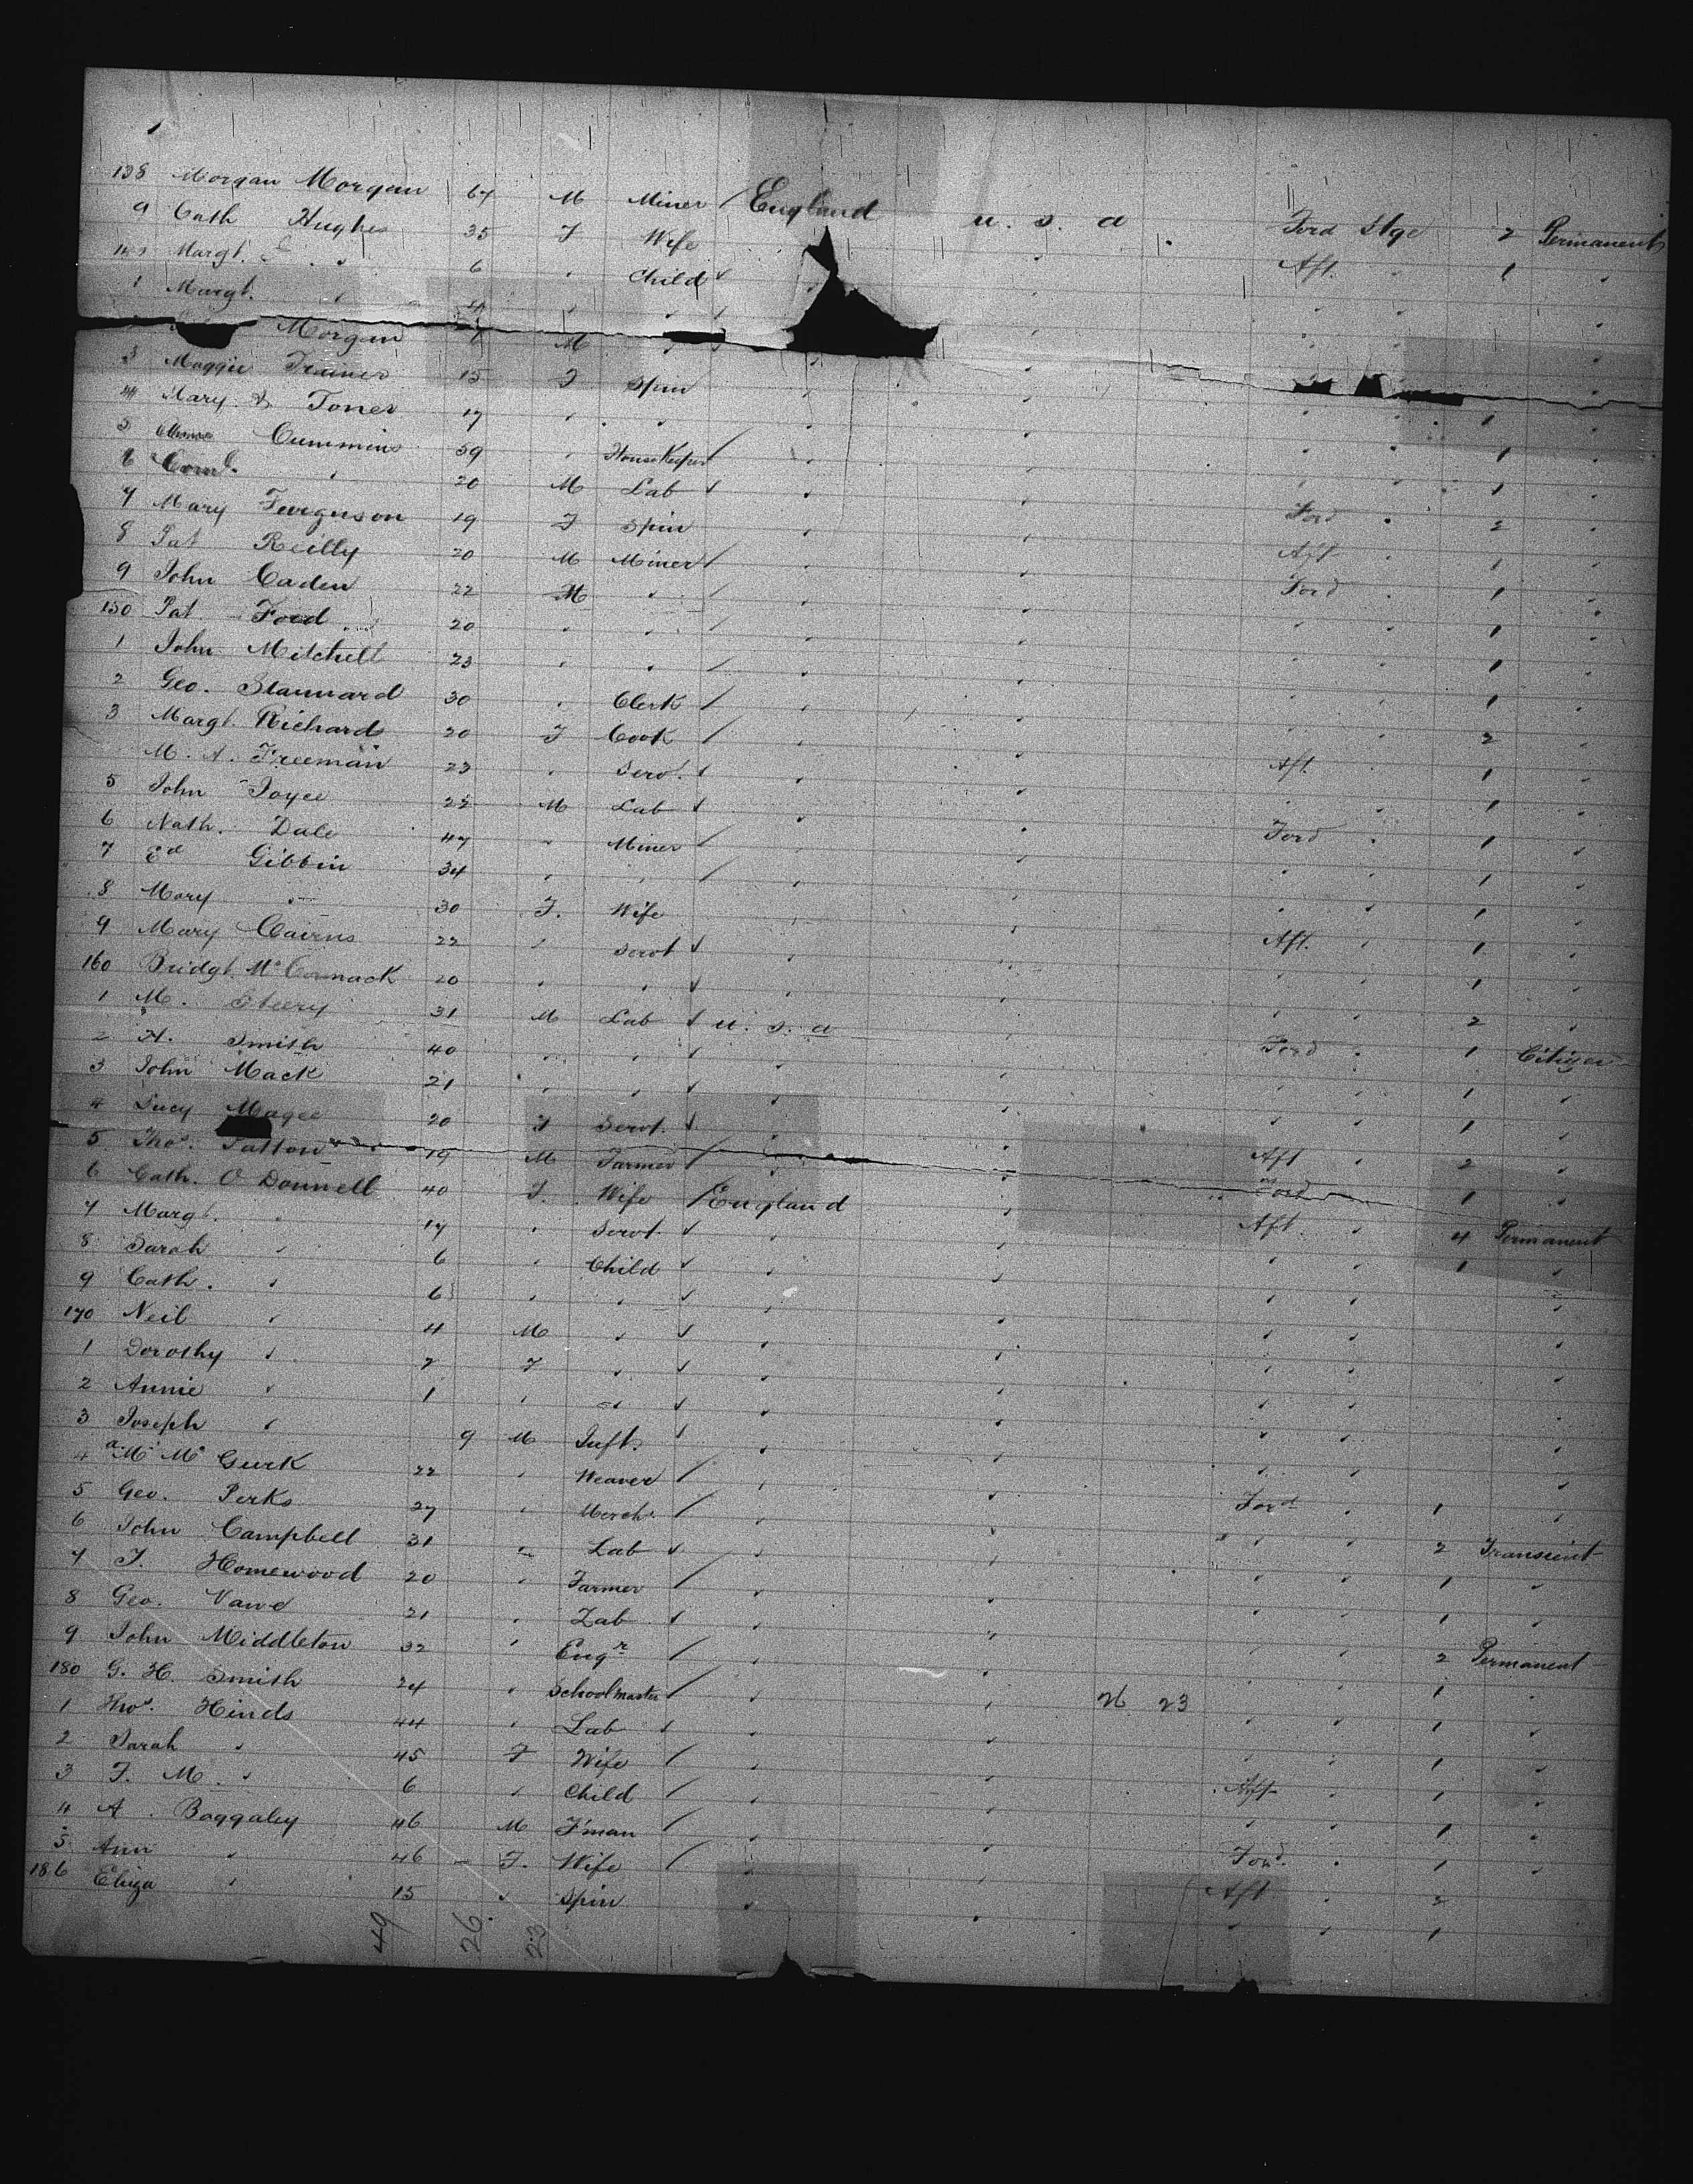 138 Morgan Morgan 67 M Miner / England u. s. a Ford Stge 2 Permanent
9 Cath Hughes 35 F Wife Aft. 1
Margt. 6 Child
1 Margt. 4
Morgan M
3 Maggie 15 F Spin 1
4 Mary Toner 17 1
5 Cummins 59 HouseKeeper / 1
6 20 M Lab Ford 2
7 Mary Furguson 19 F Spin Aft 1
8 Pat Reilly 20 M Miner / Ford 1
9 John Caden 22 M / 1
150 Pat Ford 20 / 1
1 John Mitchell 23 / 1
2 Geo. Stannard 30 Clerk / 2
3 Margt. Richards 20 F Cook / Aft. 1
M. A. Freeman 23 Servt. 1
5 John Joyce 22 M Lab Ford 1
6 Nath. Dale 47 Miner / 1
7 Ed Gibbin 34 / 1
8 Mary 30 F. Wife Aft. 1
9 Mary Cairns 22 Servt 1
160 Bridgt. McCormack 20 2
1 M. 31 M Lab u. s. a Ford 1 Citizen
2 H. Smith 40 1
3 John Mack 21 1
4 Lucy Magee 20 F Servt. Aft 2
5 Thos. Patton 19 M Farmer / Ford 1
6 Cath. O Donnell 40 F. Wife / England Aft. 4 Permanent
7 Margt. 17 Servt. 1
8 Sarah 6 Child
9 Cath. 6
170 Neil 4 M
1 Dorothy 2 F
2 Annie 1
3 Joseph 9 M Inft.
4 McGurk 22 Weaver / Ford 1
5 Geo. Perks 27 Mercht. / 2 Transient
6 John Campbell 31 Lab 1
7 J. Homewood 20 Farmer / 1
8 Geo. 21 Lab 2 Permanent
9 John Middleton 32 Engr / 1
180 G. H. Smith 24 Schoolmaster / 26 23 1
1 Thos. Hinds 44 Lab 1
2 Sarah 45 F Wife / Aft 1
3 F. M. 6 Child / 1
4 A. Baggaley 46 M F'man / Ford. 1
5 Ann 46 F. Wife / Aft 2
186 Eliza 15 Spin 1
49 26. 23